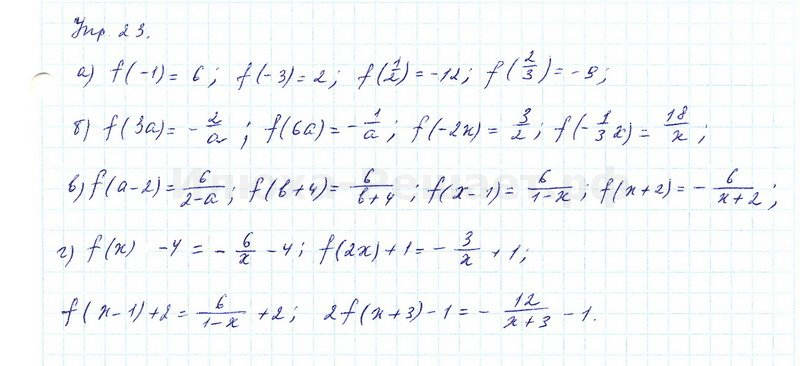 Упр. 23.
а) f(-1) = 6; f(-3) = 2; f(1/2) = -12; f(2/3) = -9;
б) f(3a) = -2/a; f(6a) = -1/a; f(-2x) = 3/2; f(-1/3 x) = 18/x;
в) f(a-2) = 6/(2-a); f(b+4) = 6/(b+4); f(x-1) = 6/(1-x); f(x+2) = -6/(x+2);
г) f(x) -4 = -6/x -4; f(2x)+1 = -3/x +1;
f(x-1)+2 = 6/(1-x) +2; 2f(x+3)-1 = -12/(x+3) -1.